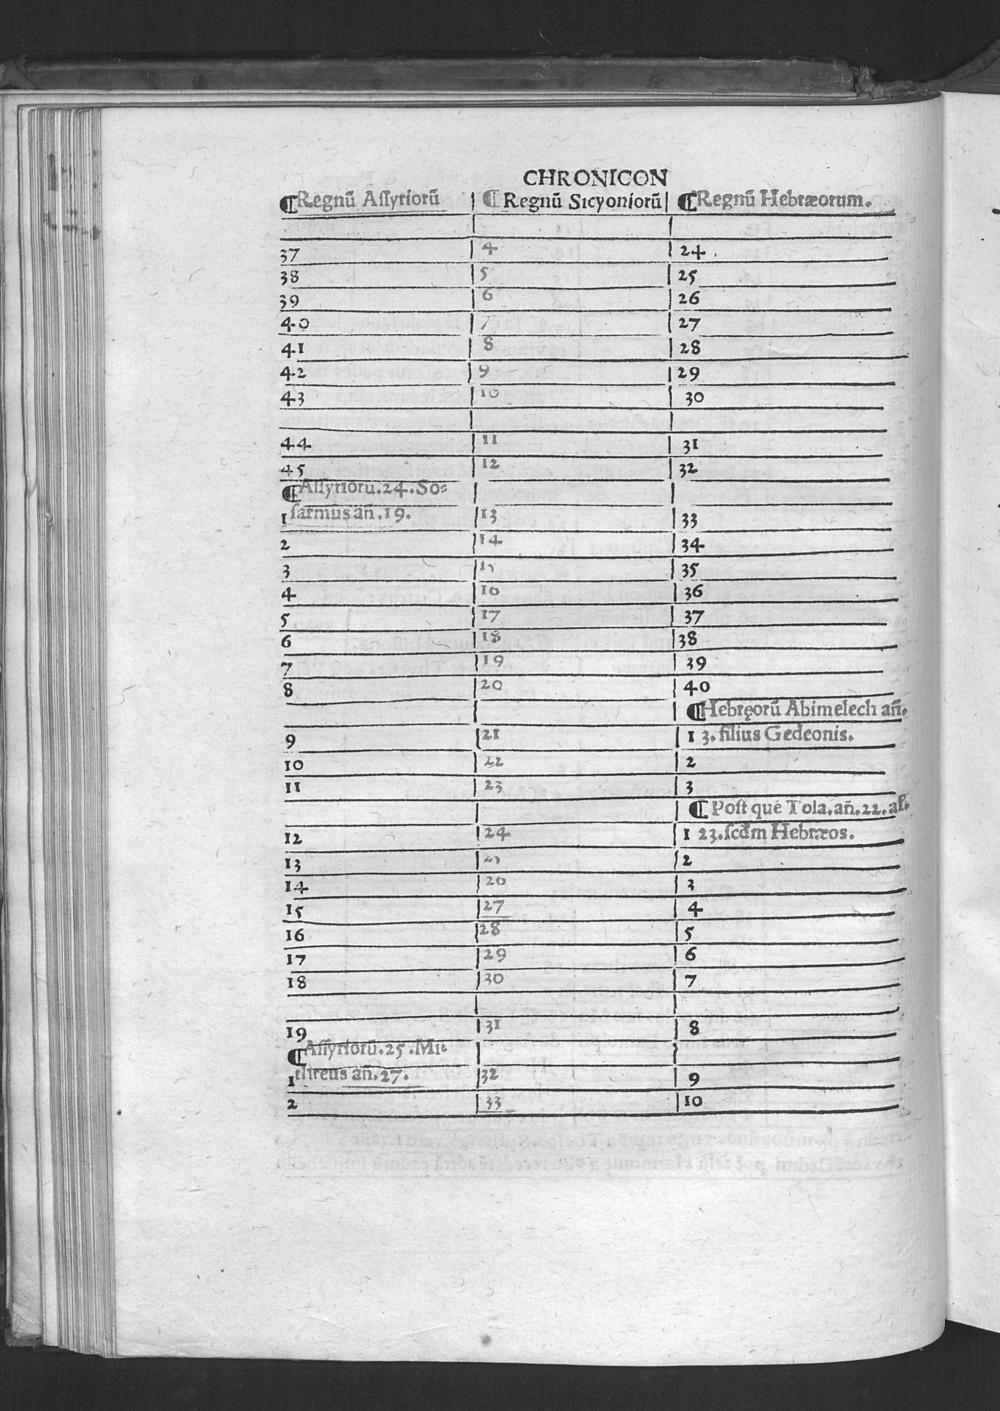 CHRONICON
¶Regnū Aſſyriorū | ¶Regnū Sicyoniorū | ¶Regnū Hebræorum.
37 | 4 | 24
38 | 5 | 25
39 | 6 | 26
40 | 7 | 27
41 | 8 | 28
42 | 9 | 29
43 | 10 | 30
44 | 11 | 31
45 | 12 | 32
¶Aſſyrioru.24.So⸗
1 ſarmus añ.19. | 13 | 33
2 | 14 | 34
3 | 15 | 35
4 | 16 | 36
5 | 17 | 37
6 | 18 | 38
7 | 19 | 39
8 | 20 | 40
¶Hebręorū Abimelech añ.
9 | 21 | 1 3.filius Gedeonis.
10 | 22 | 2
11 | 23 | 3
¶Poſt quē Tola.añ.22.
12 | 24 | 1 23.ſcdm Hebræos.
13 | 25 | 2
14 | 26 | 3
15 | 27 | 4
16 | 28 | 5
17 | 29 | 6
18 | 30 | 7
19 | 31 | 8
¶Aſſyriorū.25.Mi⸗
1 threus añ.27. | 32 | 9
2 | 33 | 10